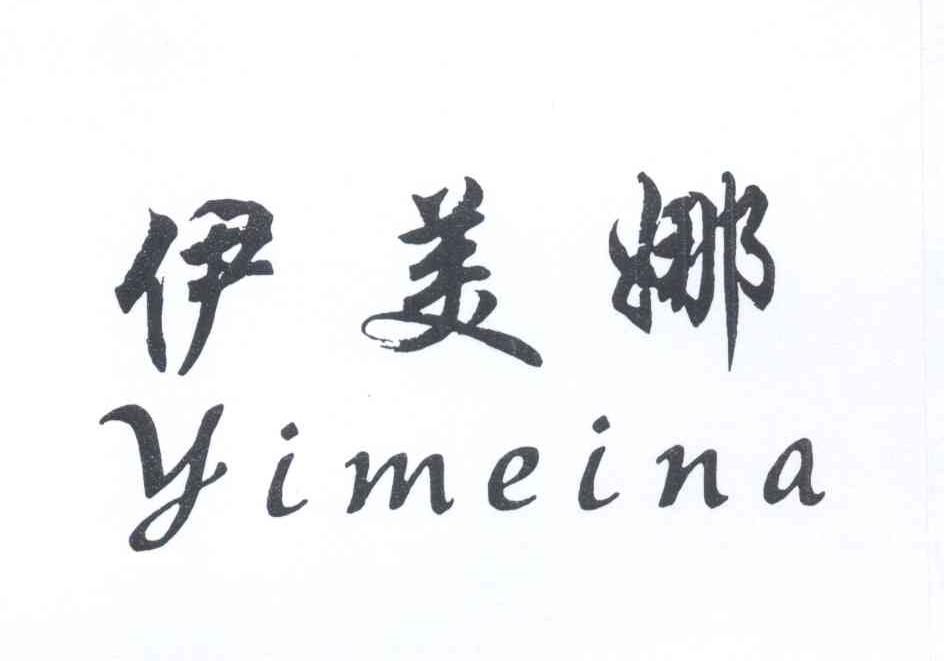 伊美娜
Yimeina